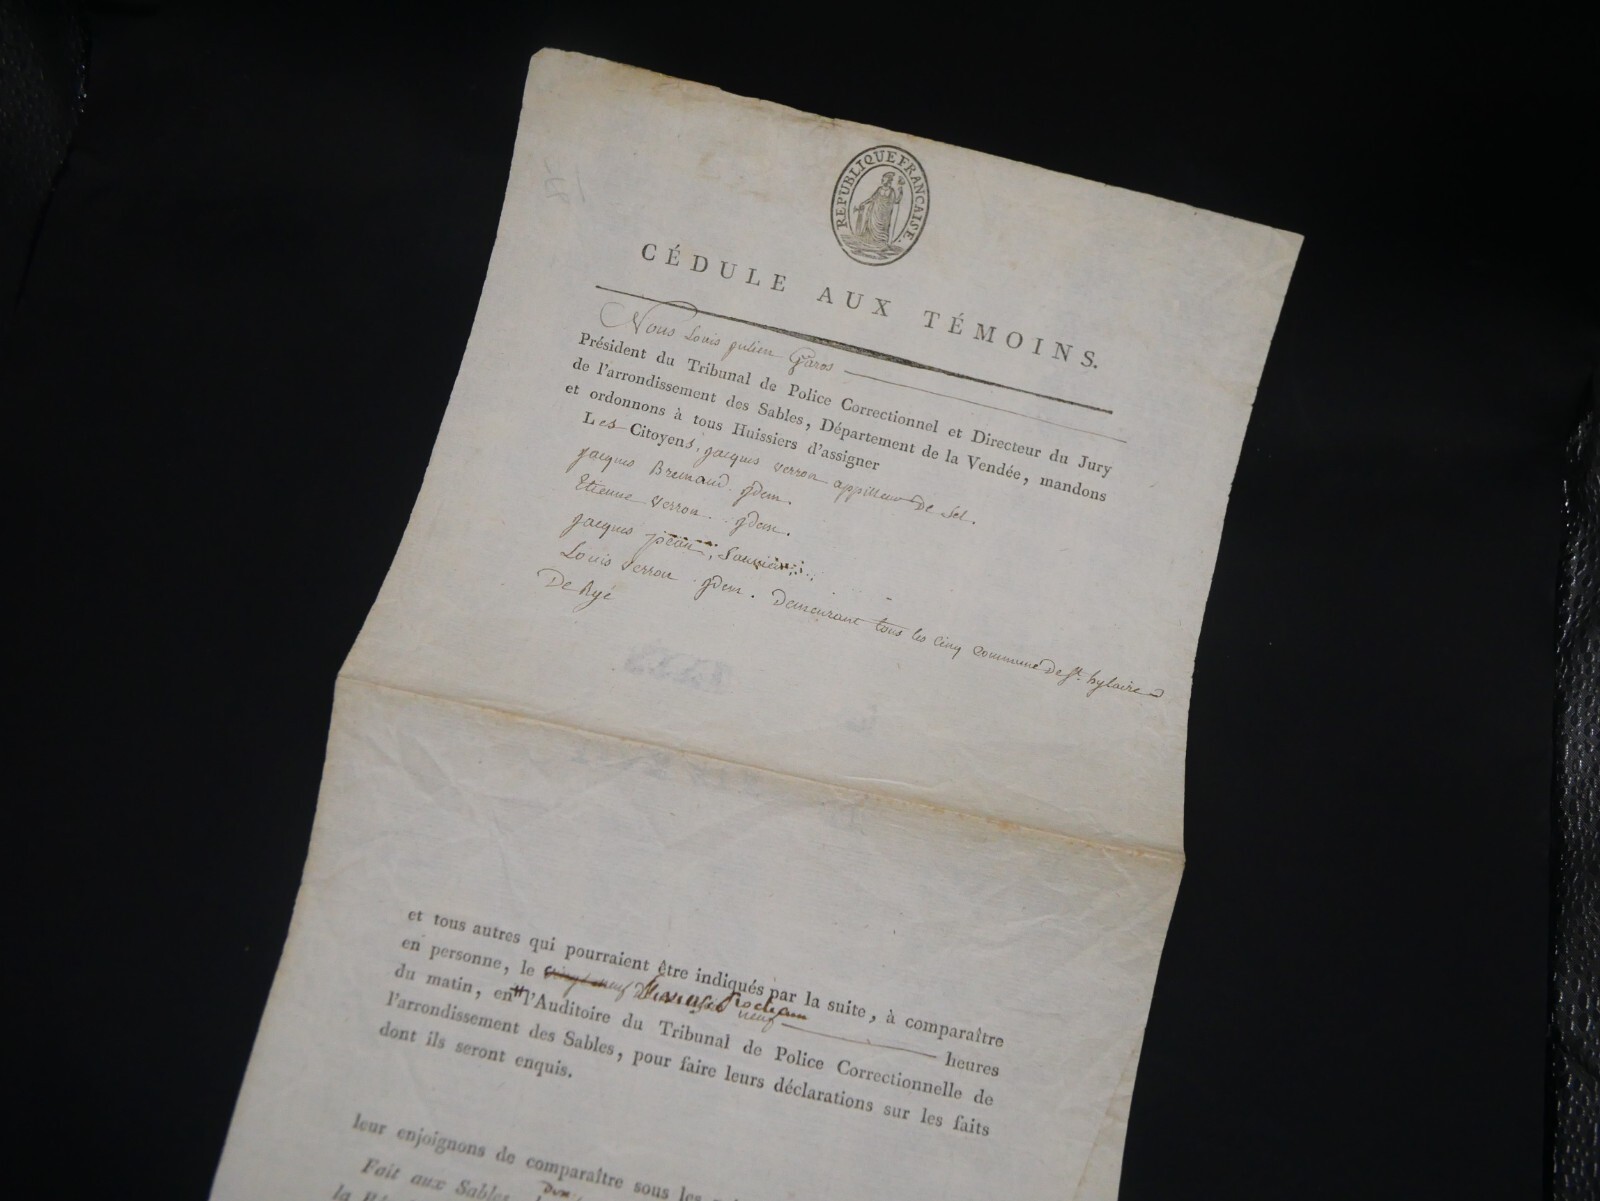 REPUBLIQUE FRANCAISE.
CÉDULE AUX TÉMOINS.
Nous Louis julien Garos
Président du Tribunal de Police Correctionnel et Directeur du Jury
de l'arrondissement des Sables, Département de la Vendée, mandons
et ordonnons à tous Huissiers d'assigner
Les Citoyens, jacques verron appilleur De Sel.
jacques Bremaud jdem.
Etienne verron jdem.
jacques
Louis verron jdem. Demeurant tous les cinq commune De St. hylaire
De Ryé
et tous autres qui pourraient être indiqués par la suite, à comparaître
en personne, le neuf heures
du matin, en l'Auditoire du Tribunal de Police Correctionnelle de
l'arrondissement des Sables, pour faire leurs déclarations sur les faits
dont ils seront enquis.
leur enjoignons de comparaître sous les
Fait aux Sables